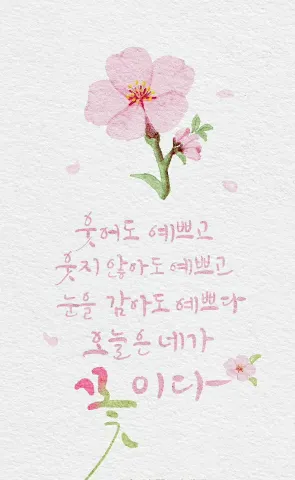 웃어도 예쁘고
웃지 않아도 예쁘고
눈을 감아도 예쁘다
오늘은 네가
꽃이다